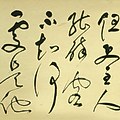 但使主人
能醉客
不知何
處是他